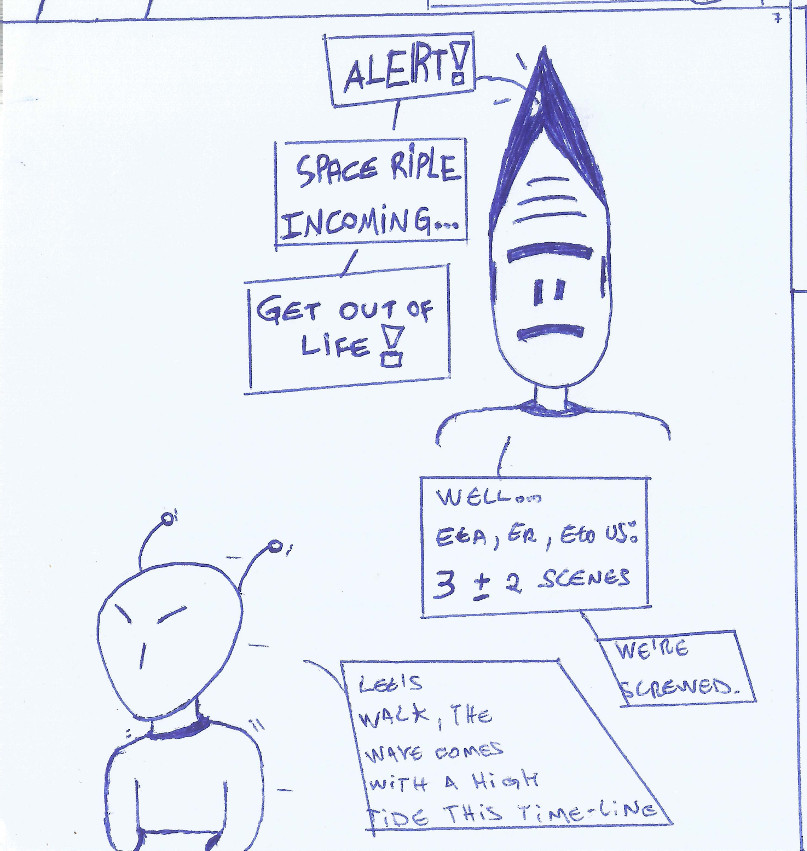 7
ALERT!
SPACE RIPLE
INCOMING...
GET OUT OF
LIFE!
WELL...
EtA, ER, Eto US:
3 ± 2 SCENES
WE'RE
SCREWED.
LEt'S
WALK, THE
WAVE COMES
WITH A HIGH
TIDE THIS TIME-LINE